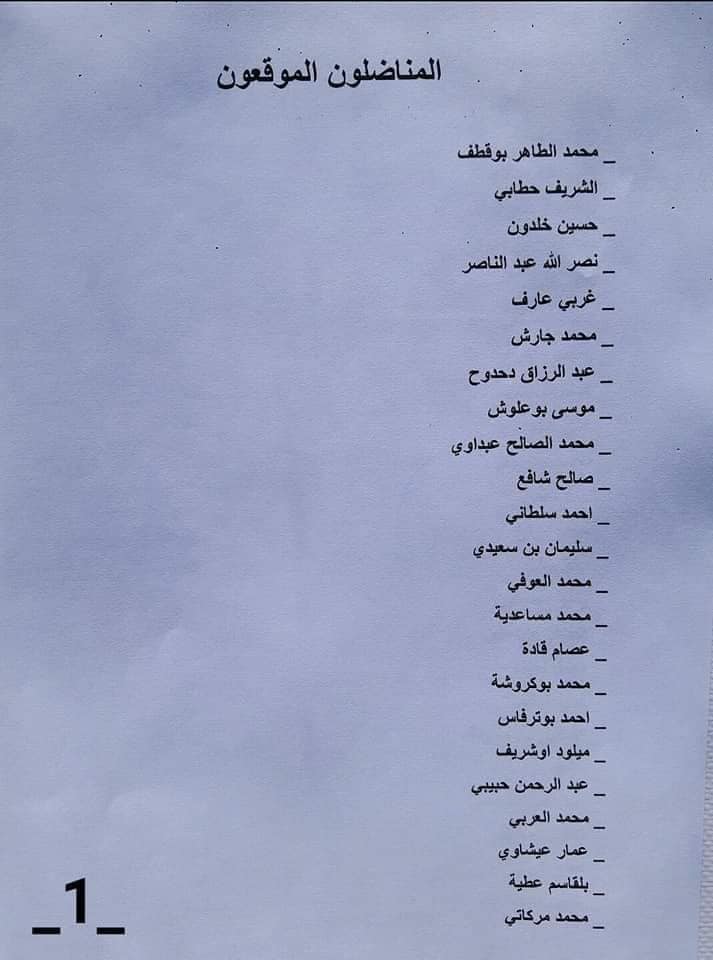 المناضلون الموقعون
_ محمد الطاهر بوقطف
_ الشريف حطابي
_ حسين خلدون
_ نصر الله عبد الناصر
_ غربي عارف
_ محمد جارش
_ عبد الرزاق دحدوح
_ موسى بوعلوش
_ محمد الصالح عبداوي
_ صالح شافع
_ احمد سلطاني
_ سليمان بن سعيدي
_ محمد العوفي
_ محمد مساعدية
_ عصام قادة
_ محمد بوكروشة
_ احمد بوترفاس
_ ميلود اوشريف
_ عبد الرحمن حبيبي
_ محمد العربي
_ عمار عيشاوي
_ بلقاسم عطية
_ محمد مركاتي
_1_